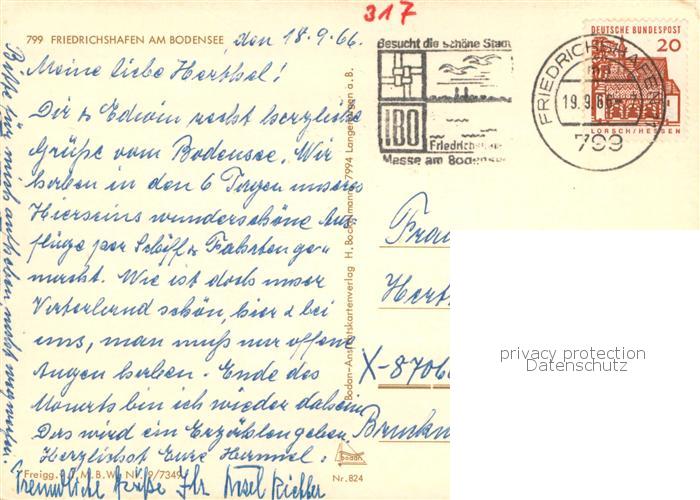 317
799 FRIEDRICHSHAFEN AM BODENSEE, den 18.9.66.
Meine liebe Herthel!
Dir & Edwin recht herzliche
Grüße vom Bodensee. Wir
haben in den 6 Tagen unseres
Hierseins wunderschöne Aus-
flüge per Schiff & Fahrten ge-
macht. Wie ist doch unser
Vaterland schön, hier & bei
uns, man muß nur offene
Augen haben. Ende des
Monats bin ich wieder daheim
Das wird ein Erzählen geben.
Herzlichst Eure Hammel!
Freundliche Grüße Ihr Richter
Bitte für mich aufheben, nicht
Freigg. M.B.W. Nr. 9/7349
Bodan-Ansichtskartenverlag H. Bockelmann 7994 Langenargen a.B.
bodan
Nr. 824
Besucht die schöne Stadt
IBO
Friedrichs
Messe am Bodensee
FRIEDRICHSHAFEN
19.9.66
799
DEUTSCHE BUNDESPOST
20
LORSCH/HESSEN
Frau
Herth
X-8706
privacy protection
Datenschutz